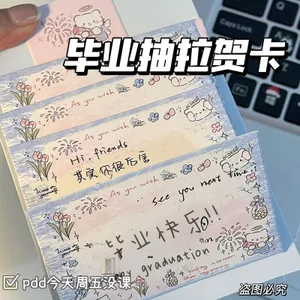 毕业抽拉贺卡
As you wish
As you wish
Hi, friends
其实你很厉害
As you wish
see you next time
毕业快乐!!
graduation
pdd今天周五没课
盗图必究